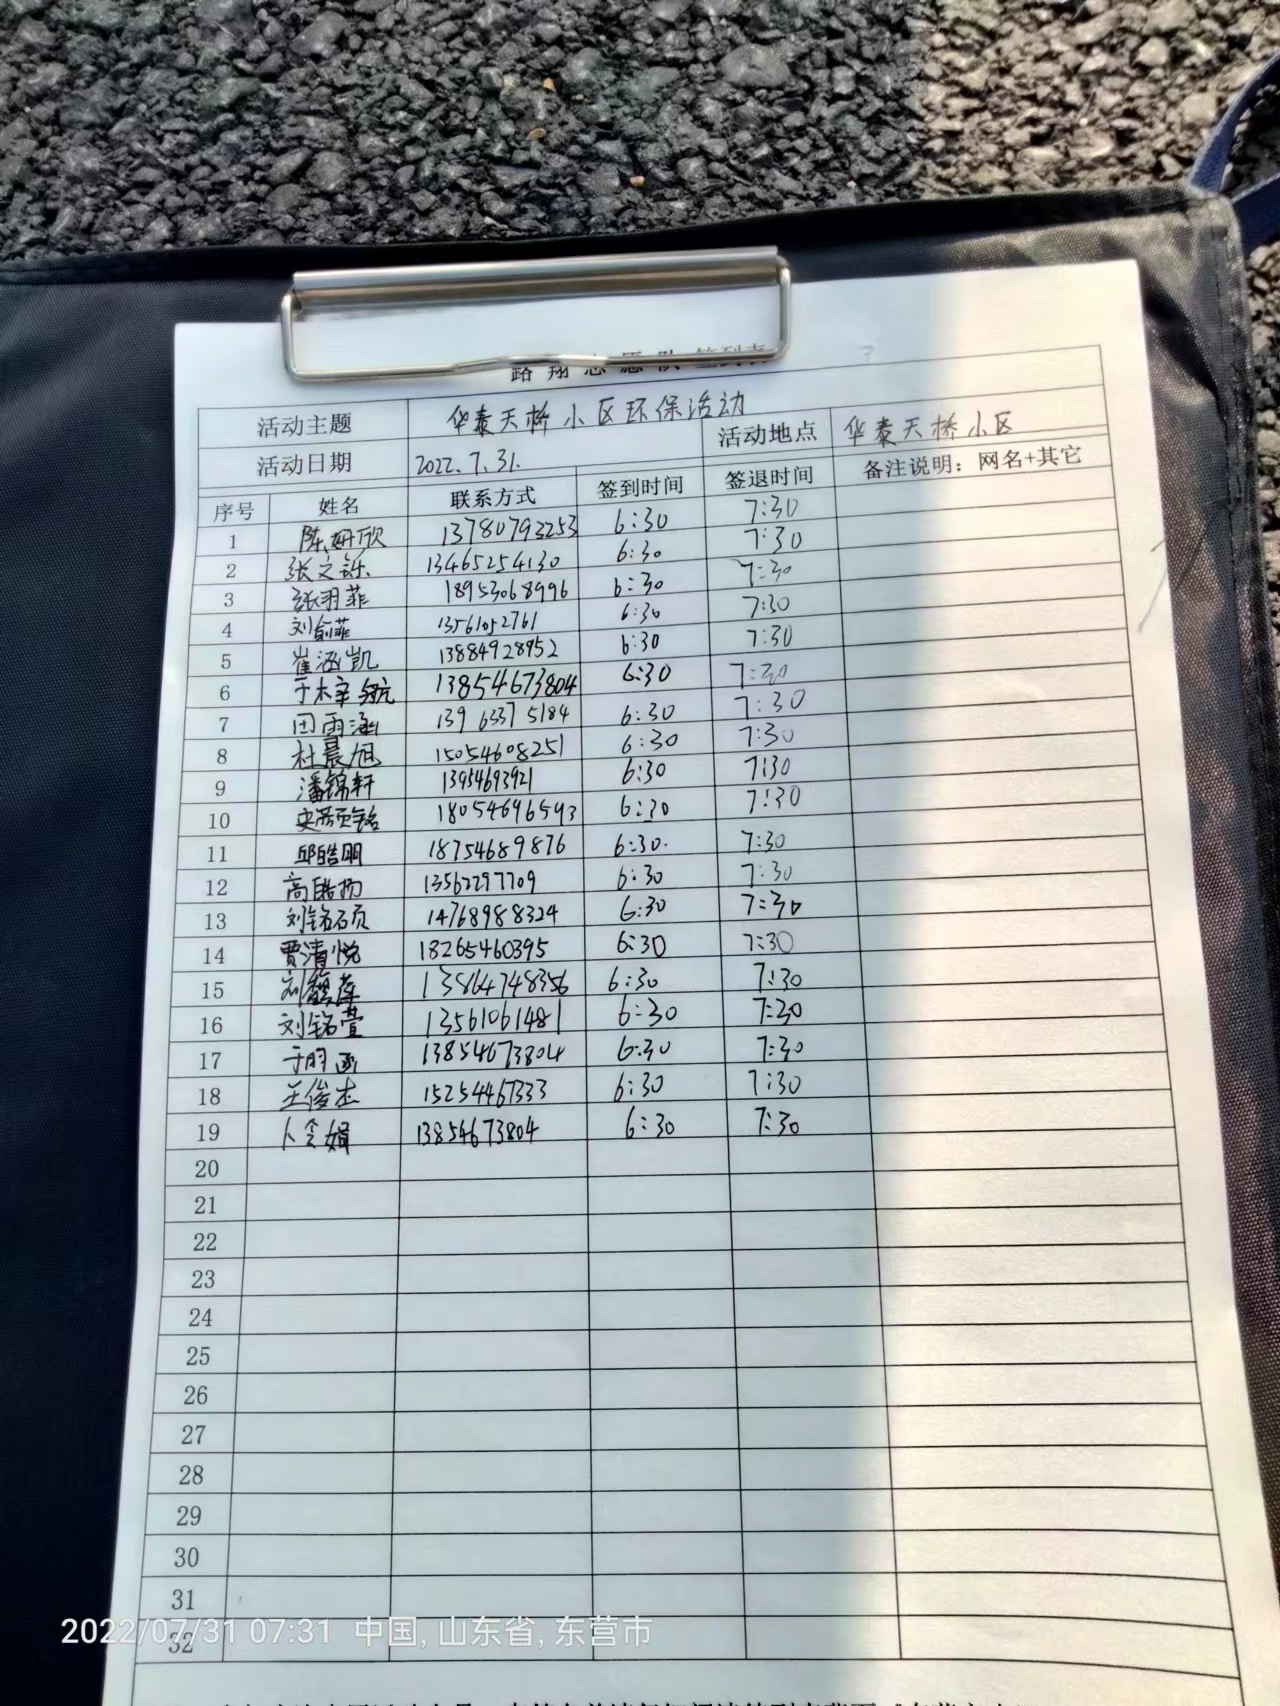 路翔志愿队签到表
活动主题 华泰天桥小区环保活动
活动日期 2022.7.31. 活动地点 华泰天桥小区
序号 姓名 联系方式 签到时间 签退时间 备注说明：网名+其它
1 陈妍欣 13780793253 6:30 7:30
2 张文铄 13465254130 6:30 7:30
3 张羽菲 18953068996 6:30 7:30
4 刘俞菲 13561052761 6:30 7:30
5 崔涵凯 13884928952 6:30 7:30
6 于梓航 13854673804 6:30 7:30
7 田雨涵 139 6337 5184 6:30 7:30
8 杜晨旭 15054608251 6:30 7:30
9 潘锦轩 13954693921 6:30 7:30
10 史 铭 18054696593 6:30 7:30
11 邱皓明 18754689876 6:30. 7:30
12 高皓扬 13562297709 6:30 7:30
13 刘铭硕 14768988324 6:30 7:30
14 贾清悦 18265460395 6:30 7:30
15 刘 13864748356 6:30 7:30
16 刘铭萱 13561061481 6:30 7:30
17 于明函 13854673804 6:30 7:30
18 王俊杰 15254467333 6:30 7:30
19 卜令娟 13854673804 6:30 7:30
20
21
22
23
24
25
26
27
28
29
30
31
32
2022/07/31 07:31 中国, 山东省, 东营市